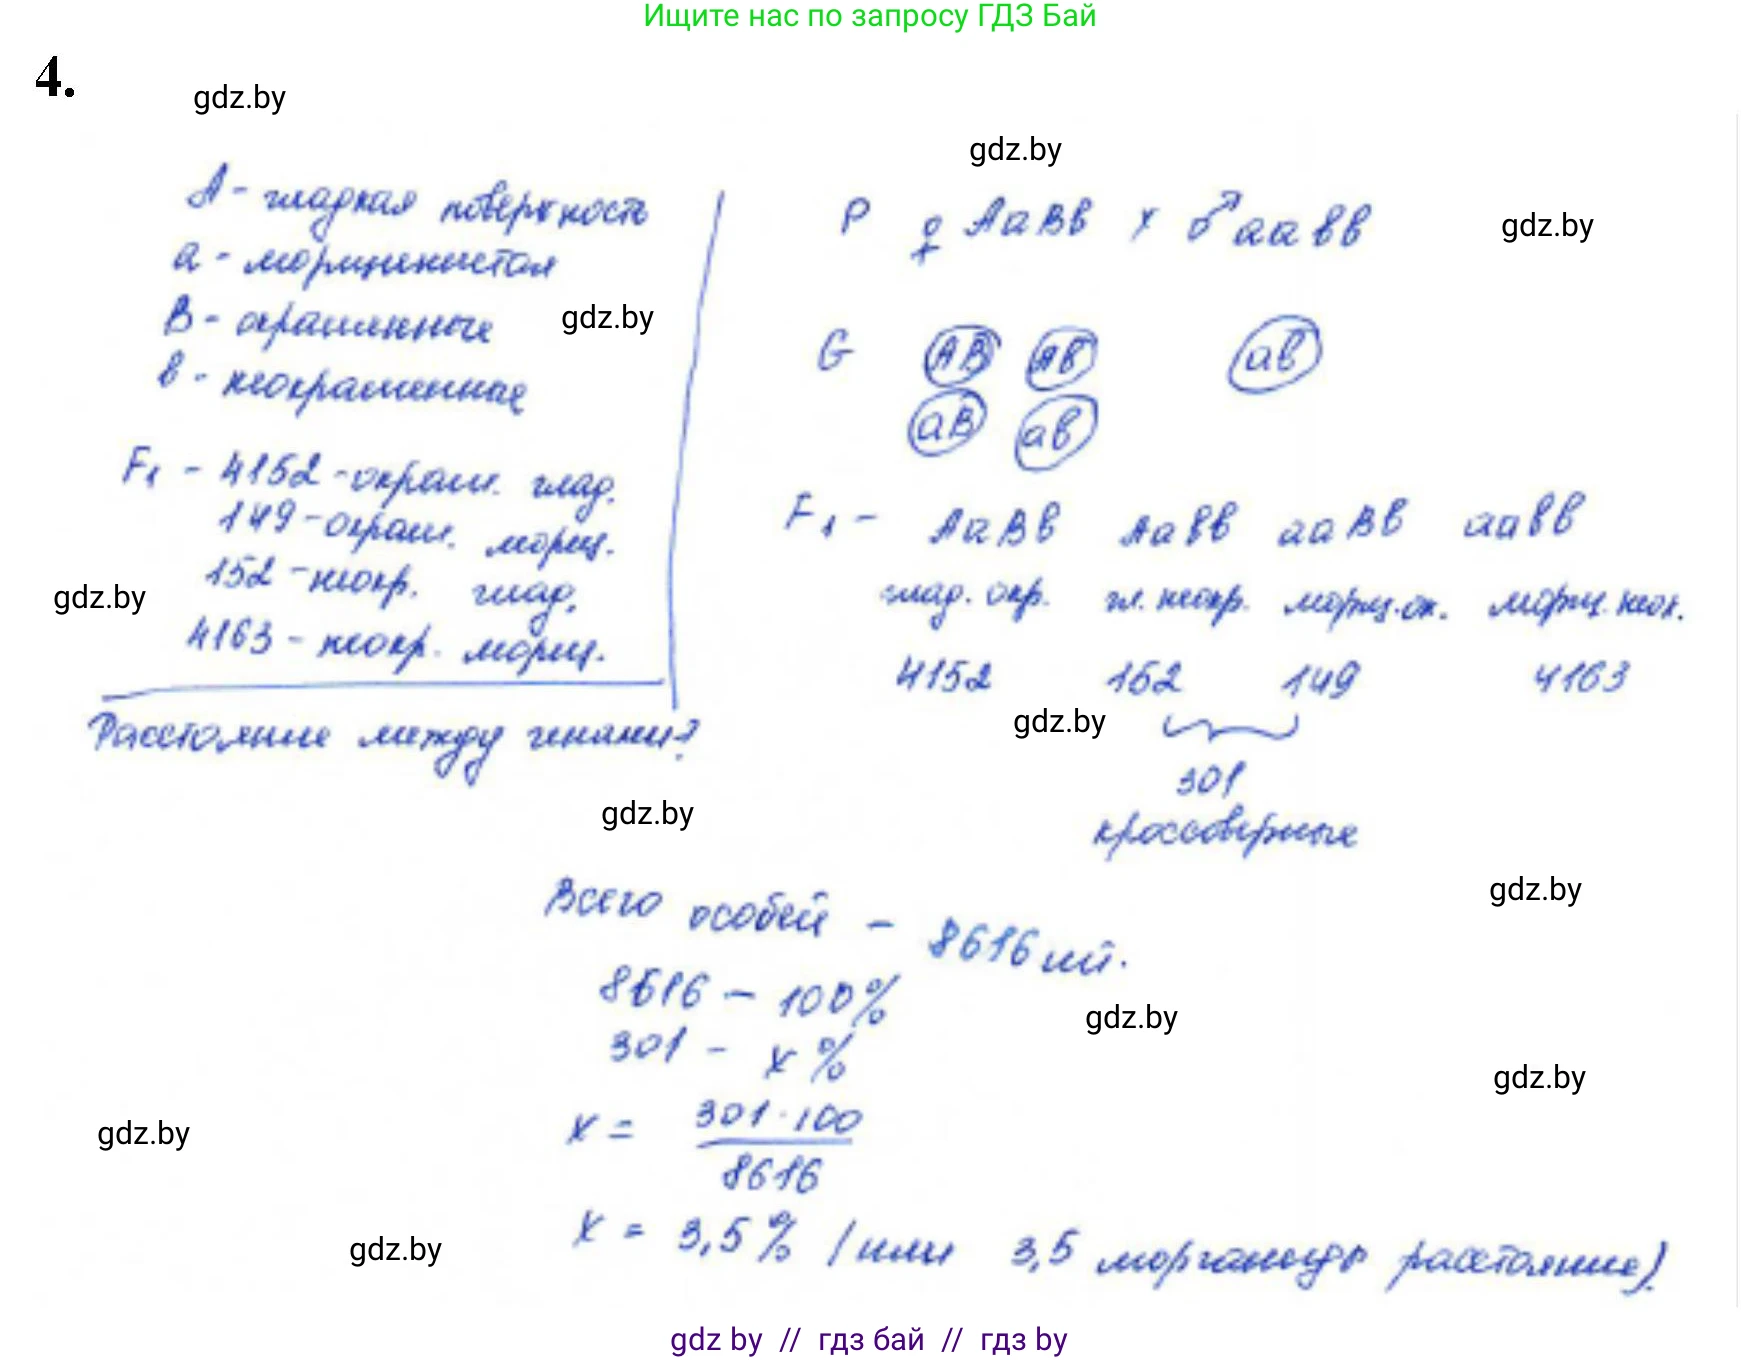 Ищите нас по запросу ГДЗ Бай
4.
gdz.by
gdz.by
А - гладкая поверхность
а - морщинистая
В - окрашенные
gdz.by
в - неокрашенные
F₁ - 4152 - окраш. глад.
149 - окраш. морщ.
152 - неокр. глад.
gdz.by
4163 - неокр. морщ.
Расстояние между генами?
P ♀ АаВв х ♂ аавв
gdz.by
G АВ Ав ав
аВ ав
F₁ - АаВв Аавв ааВв аавв
глад. окр. гл. неокр. морщ. ок. морщ. неок.
4152 152 149 4163
gdz.by
301
кроссоверные
gdz.by
gdz.by
Всего особей - 8616 шт.
8616 - 100%
gdz.by
301 - х %
gdz.by
х = 301 · 100
8616
gdz.by
х = 3,5% (или 3,5 морганиды расстояние).
gdz.by
gdz by // гдз бай // гдз by